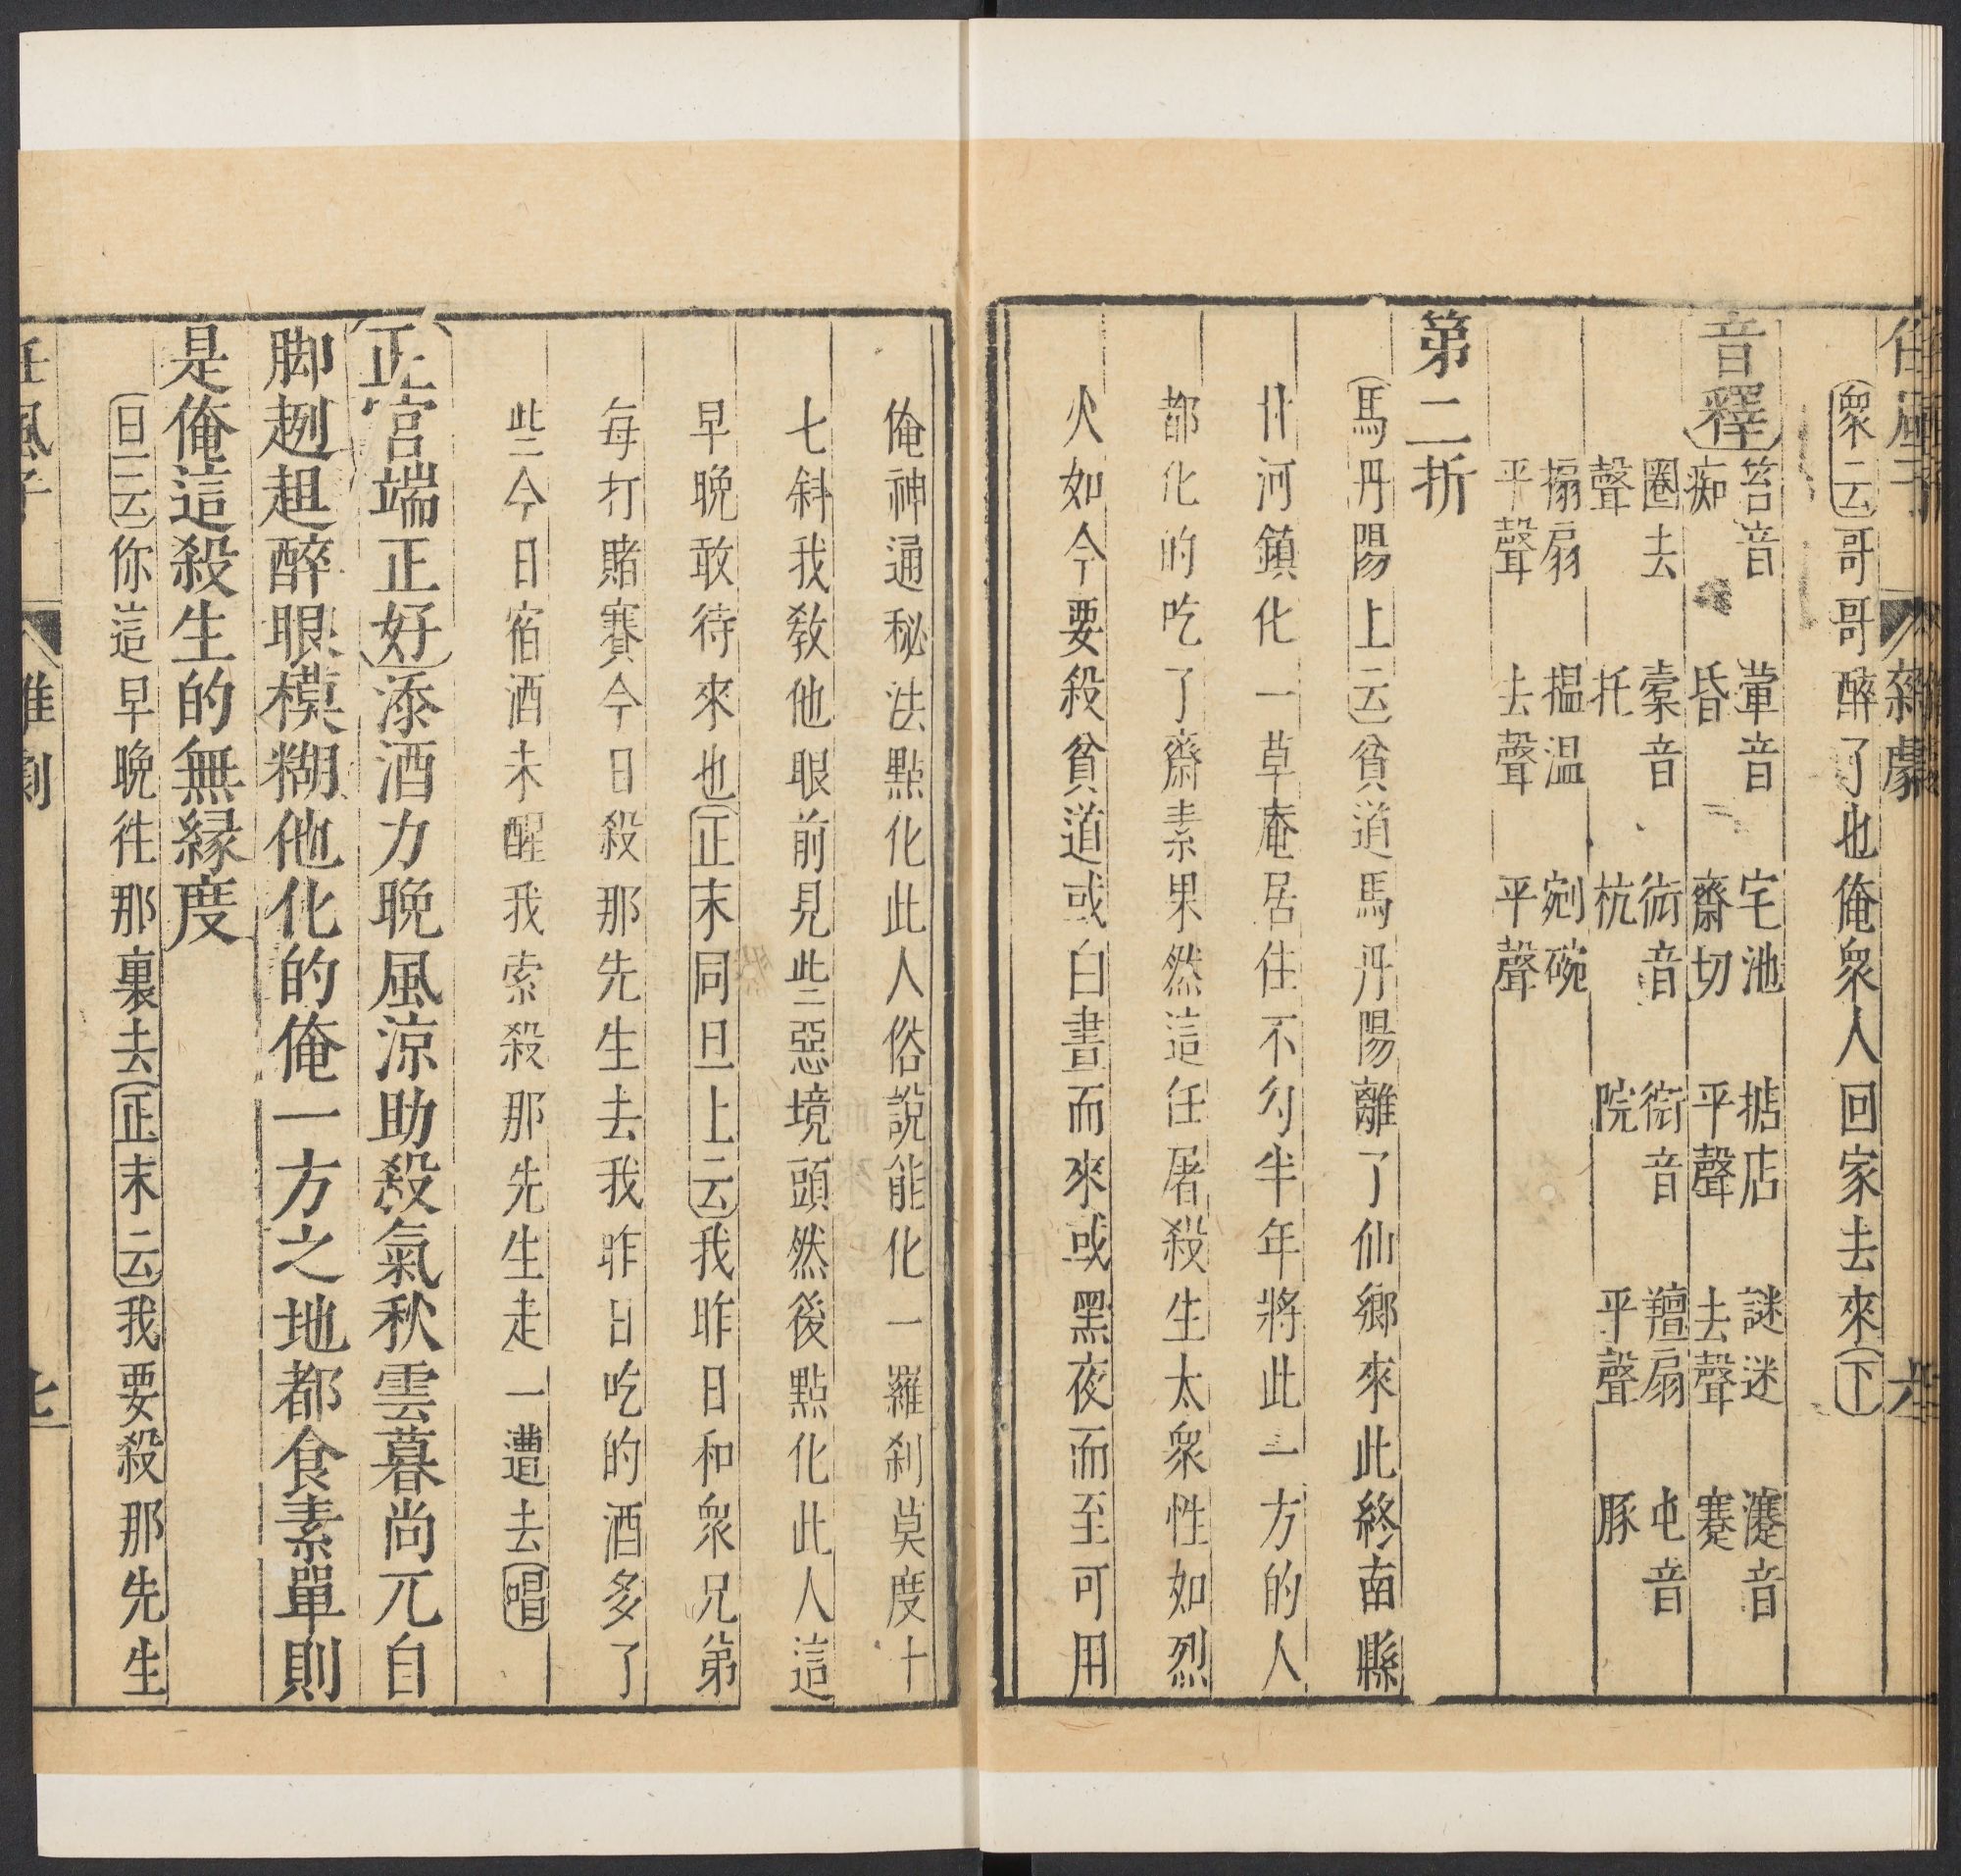 任風子 雜劇 六
衆云哥哥醉了也俺衆人回家去來下
音釋
笞音痴 葷音昏 宅池齋切 掂店平聲 謎迷去聲 㾾音蹇
圈去聲 橐音托 衏音杭 衒音院 羶扇平聲 屯音豚
搧扇平聲 搵温去聲 剜碗平聲
第二折
馬丹陽上云貧道馬丹陽離了仙鄉來此終南縣
甘河鎮化一草庵居住不勾半年將此一方的人
都化的吃了齋素果然這任屠殺生太衆性如烈
火如今要殺貧道或白晝而來或黑夜而至可用
俺神通秘法點化此人俗說能化一羅刹莫度十
七斜我教他眼前見些惡境頭然後點化此人這
早晚敢待來也正末同旦上云我昨日和衆兄弟
每打賭賽今日殺那先生去我昨日吃的酒多了
些今日宿酒未醒我索殺那先生走一遭去唱
正宮端正好添酒力晚風涼助殺氣秋雲暮尚兀自
脚趔趄醉眼模糊他化的俺一方之地都食素單則
是俺這殺生的無緣度
旦云你這早晚往那裏去正末云我要殺那先生
任風子 雜劇 七